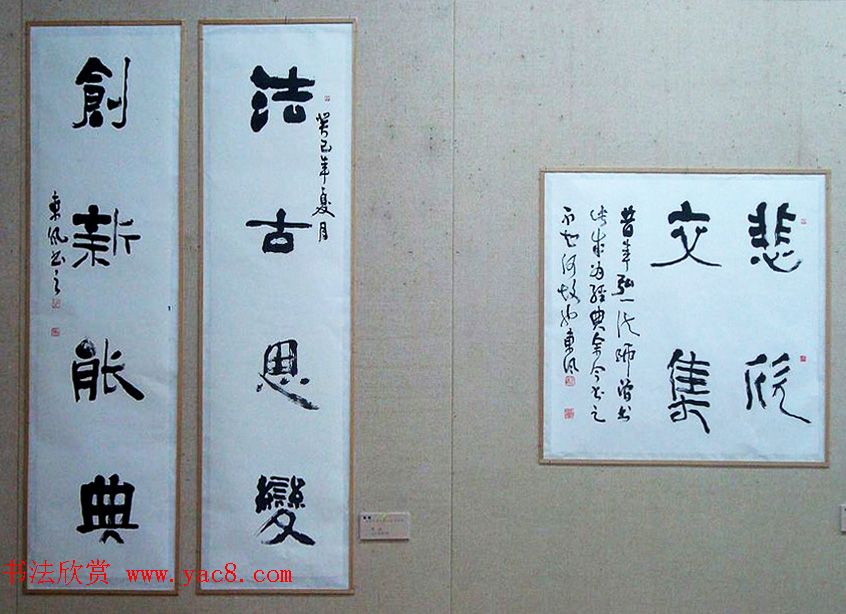 悲欣
交集
昔年弘一法師曾書
为經典余今書之
不知何故也東風
癸巳年夏月
法古思變
創新能典
東風書之
书法欣赏 www.yac8.com